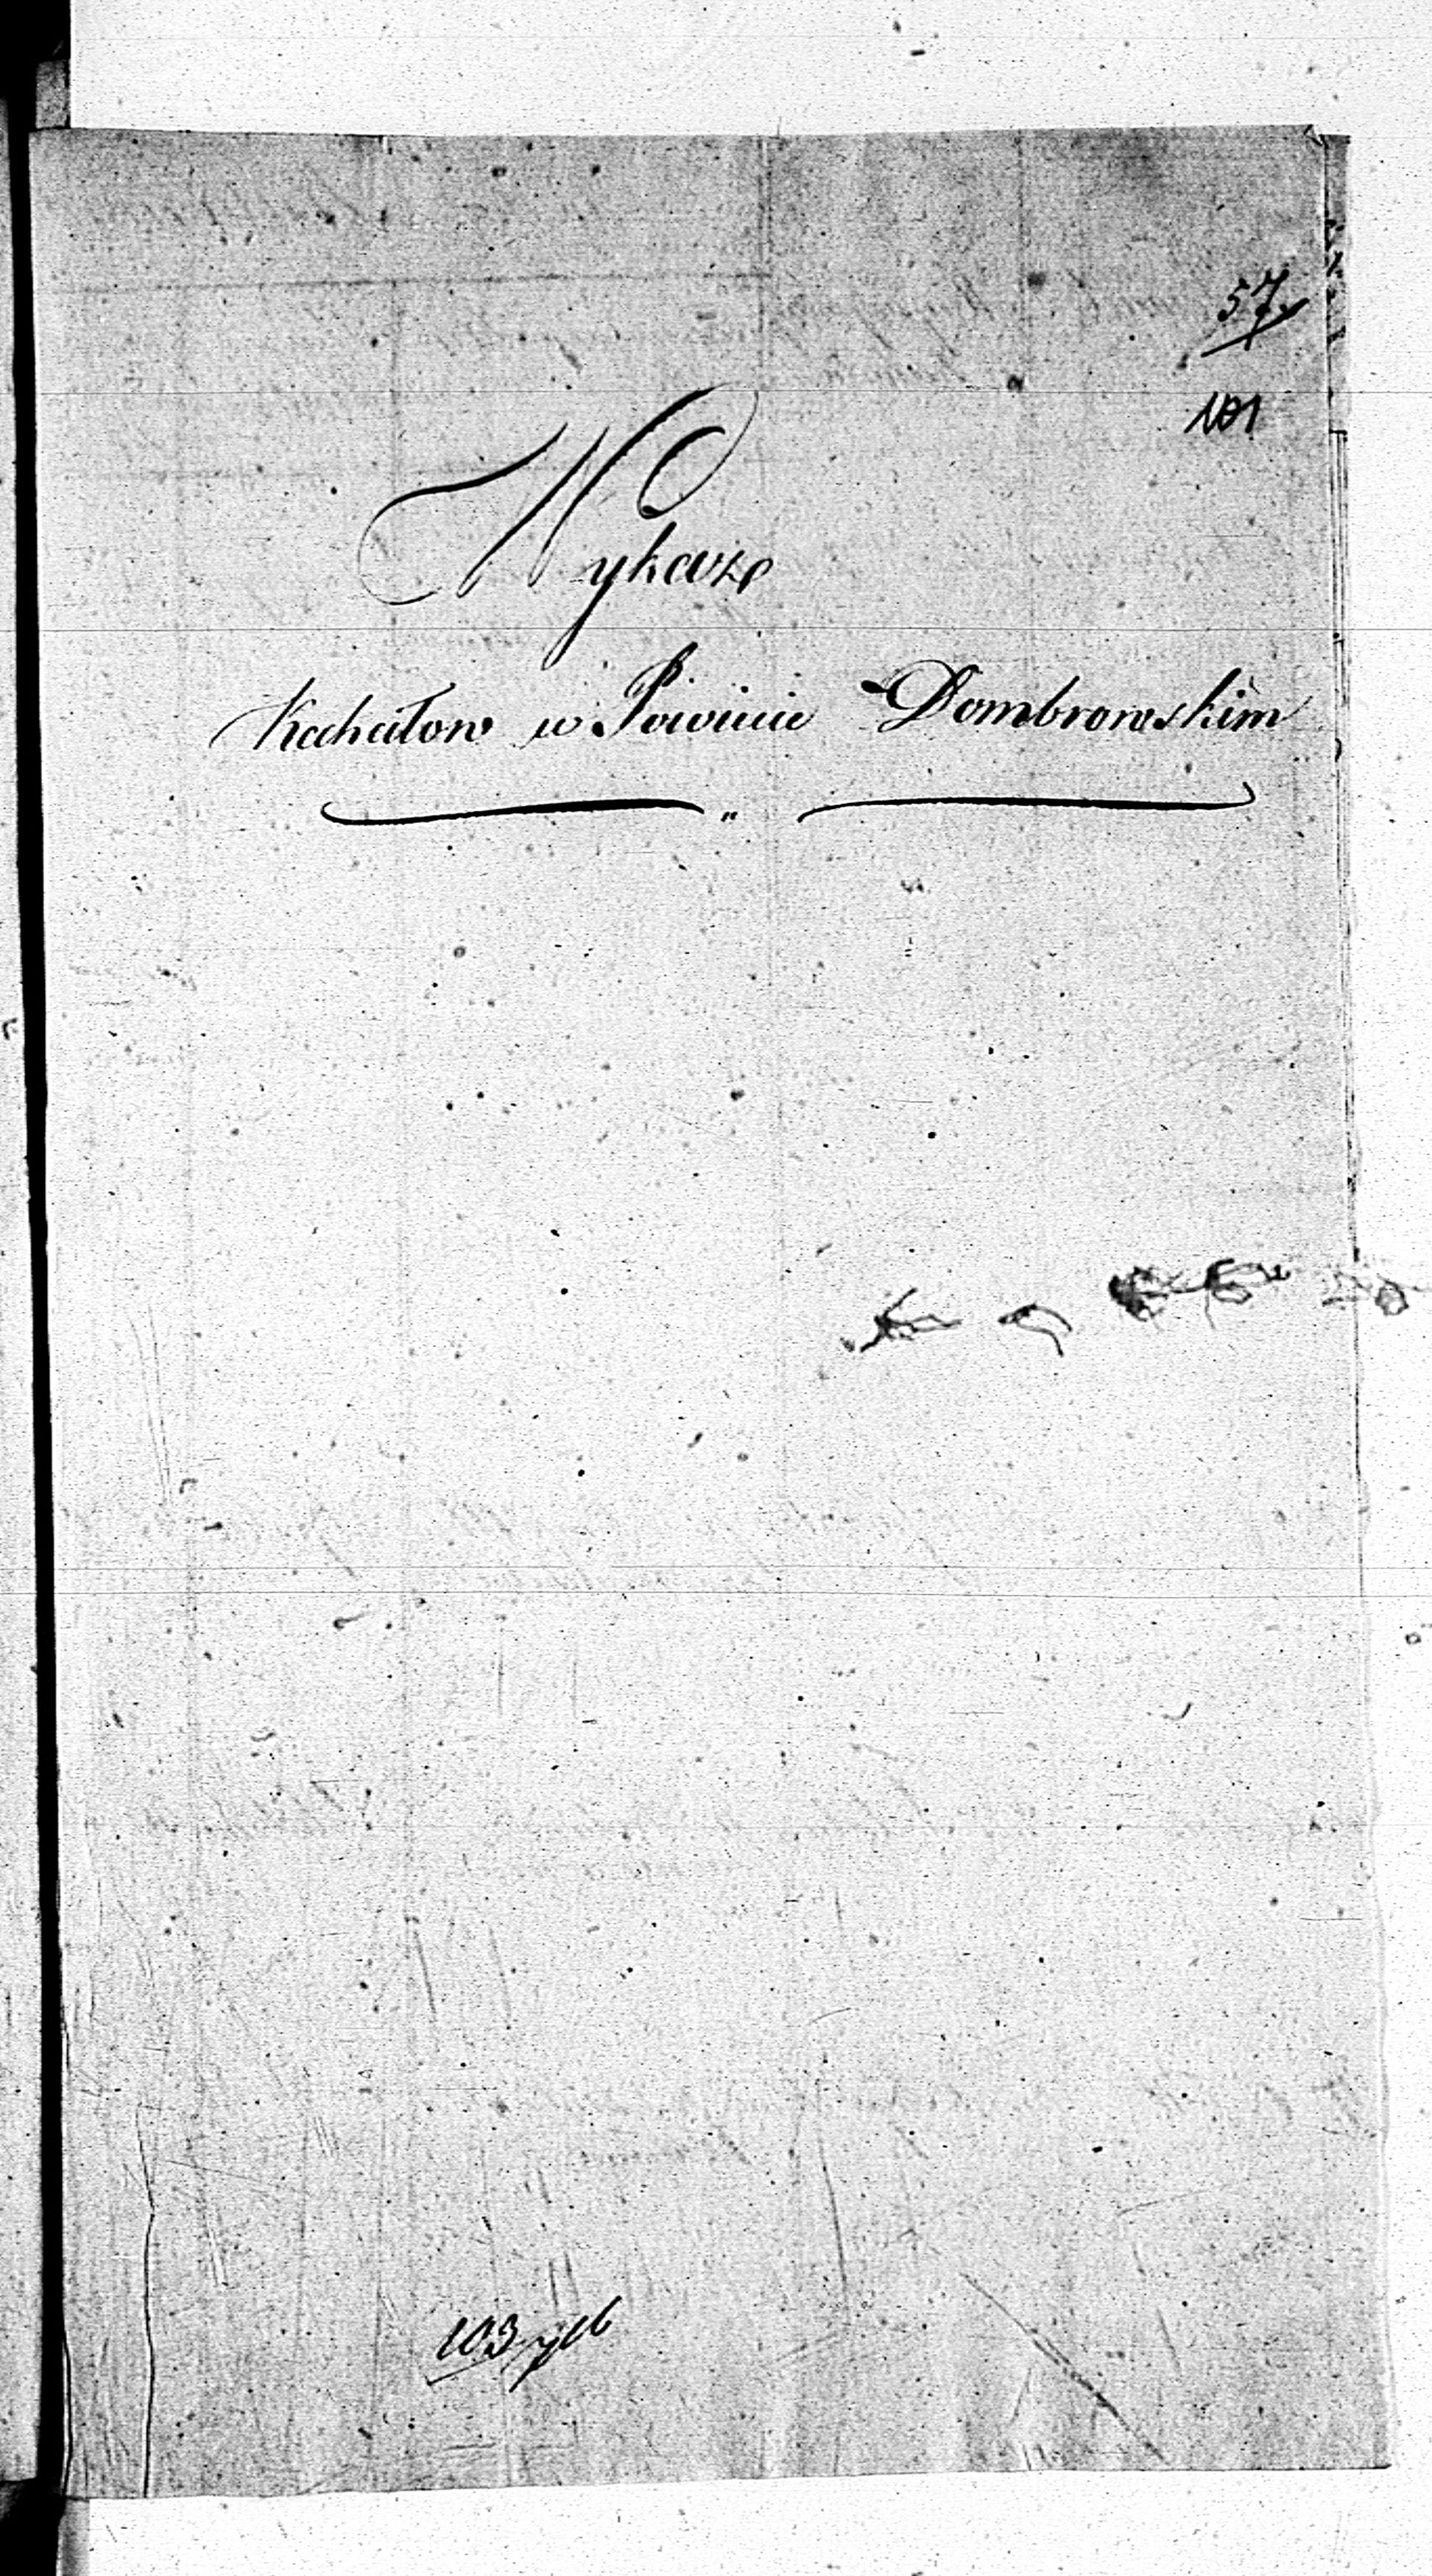 57
101
Wykaz
Kahałow w Powiecie Dombrowskim
103